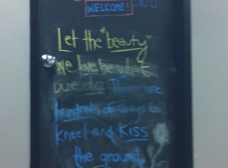 WELCOME!
Let the "beauty"
We love be what
we do. There are
hundreds of ways to
kneel and KISS
the ground.